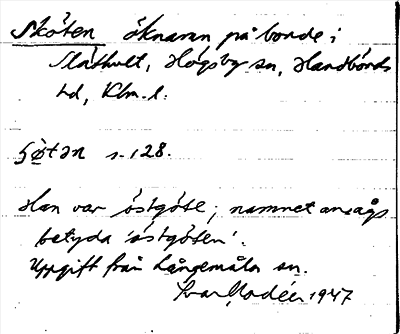 Sköten öknamn på bonde i
Slåthult, Högsby sn, Handbörds
hd, Klm. l.
s. 128.
Han var östgöte; namnet ansågs
betyda 'östgöten'.
Uppgift från Långemåla sn.
Ivar Modéer 1947